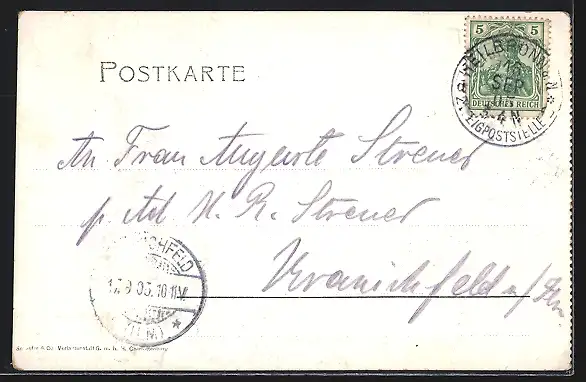 POSTKARTE
5
DEUTSCHES REICH
HEILBRONN
SEP
ZWEIGPOSTSTELLE
An Frau Auguste Strener
p. Ad H. R. Strener
Kranichfeld a/Ilm
KRANICHFELD
17.9.05.10-11V.
(ILM)